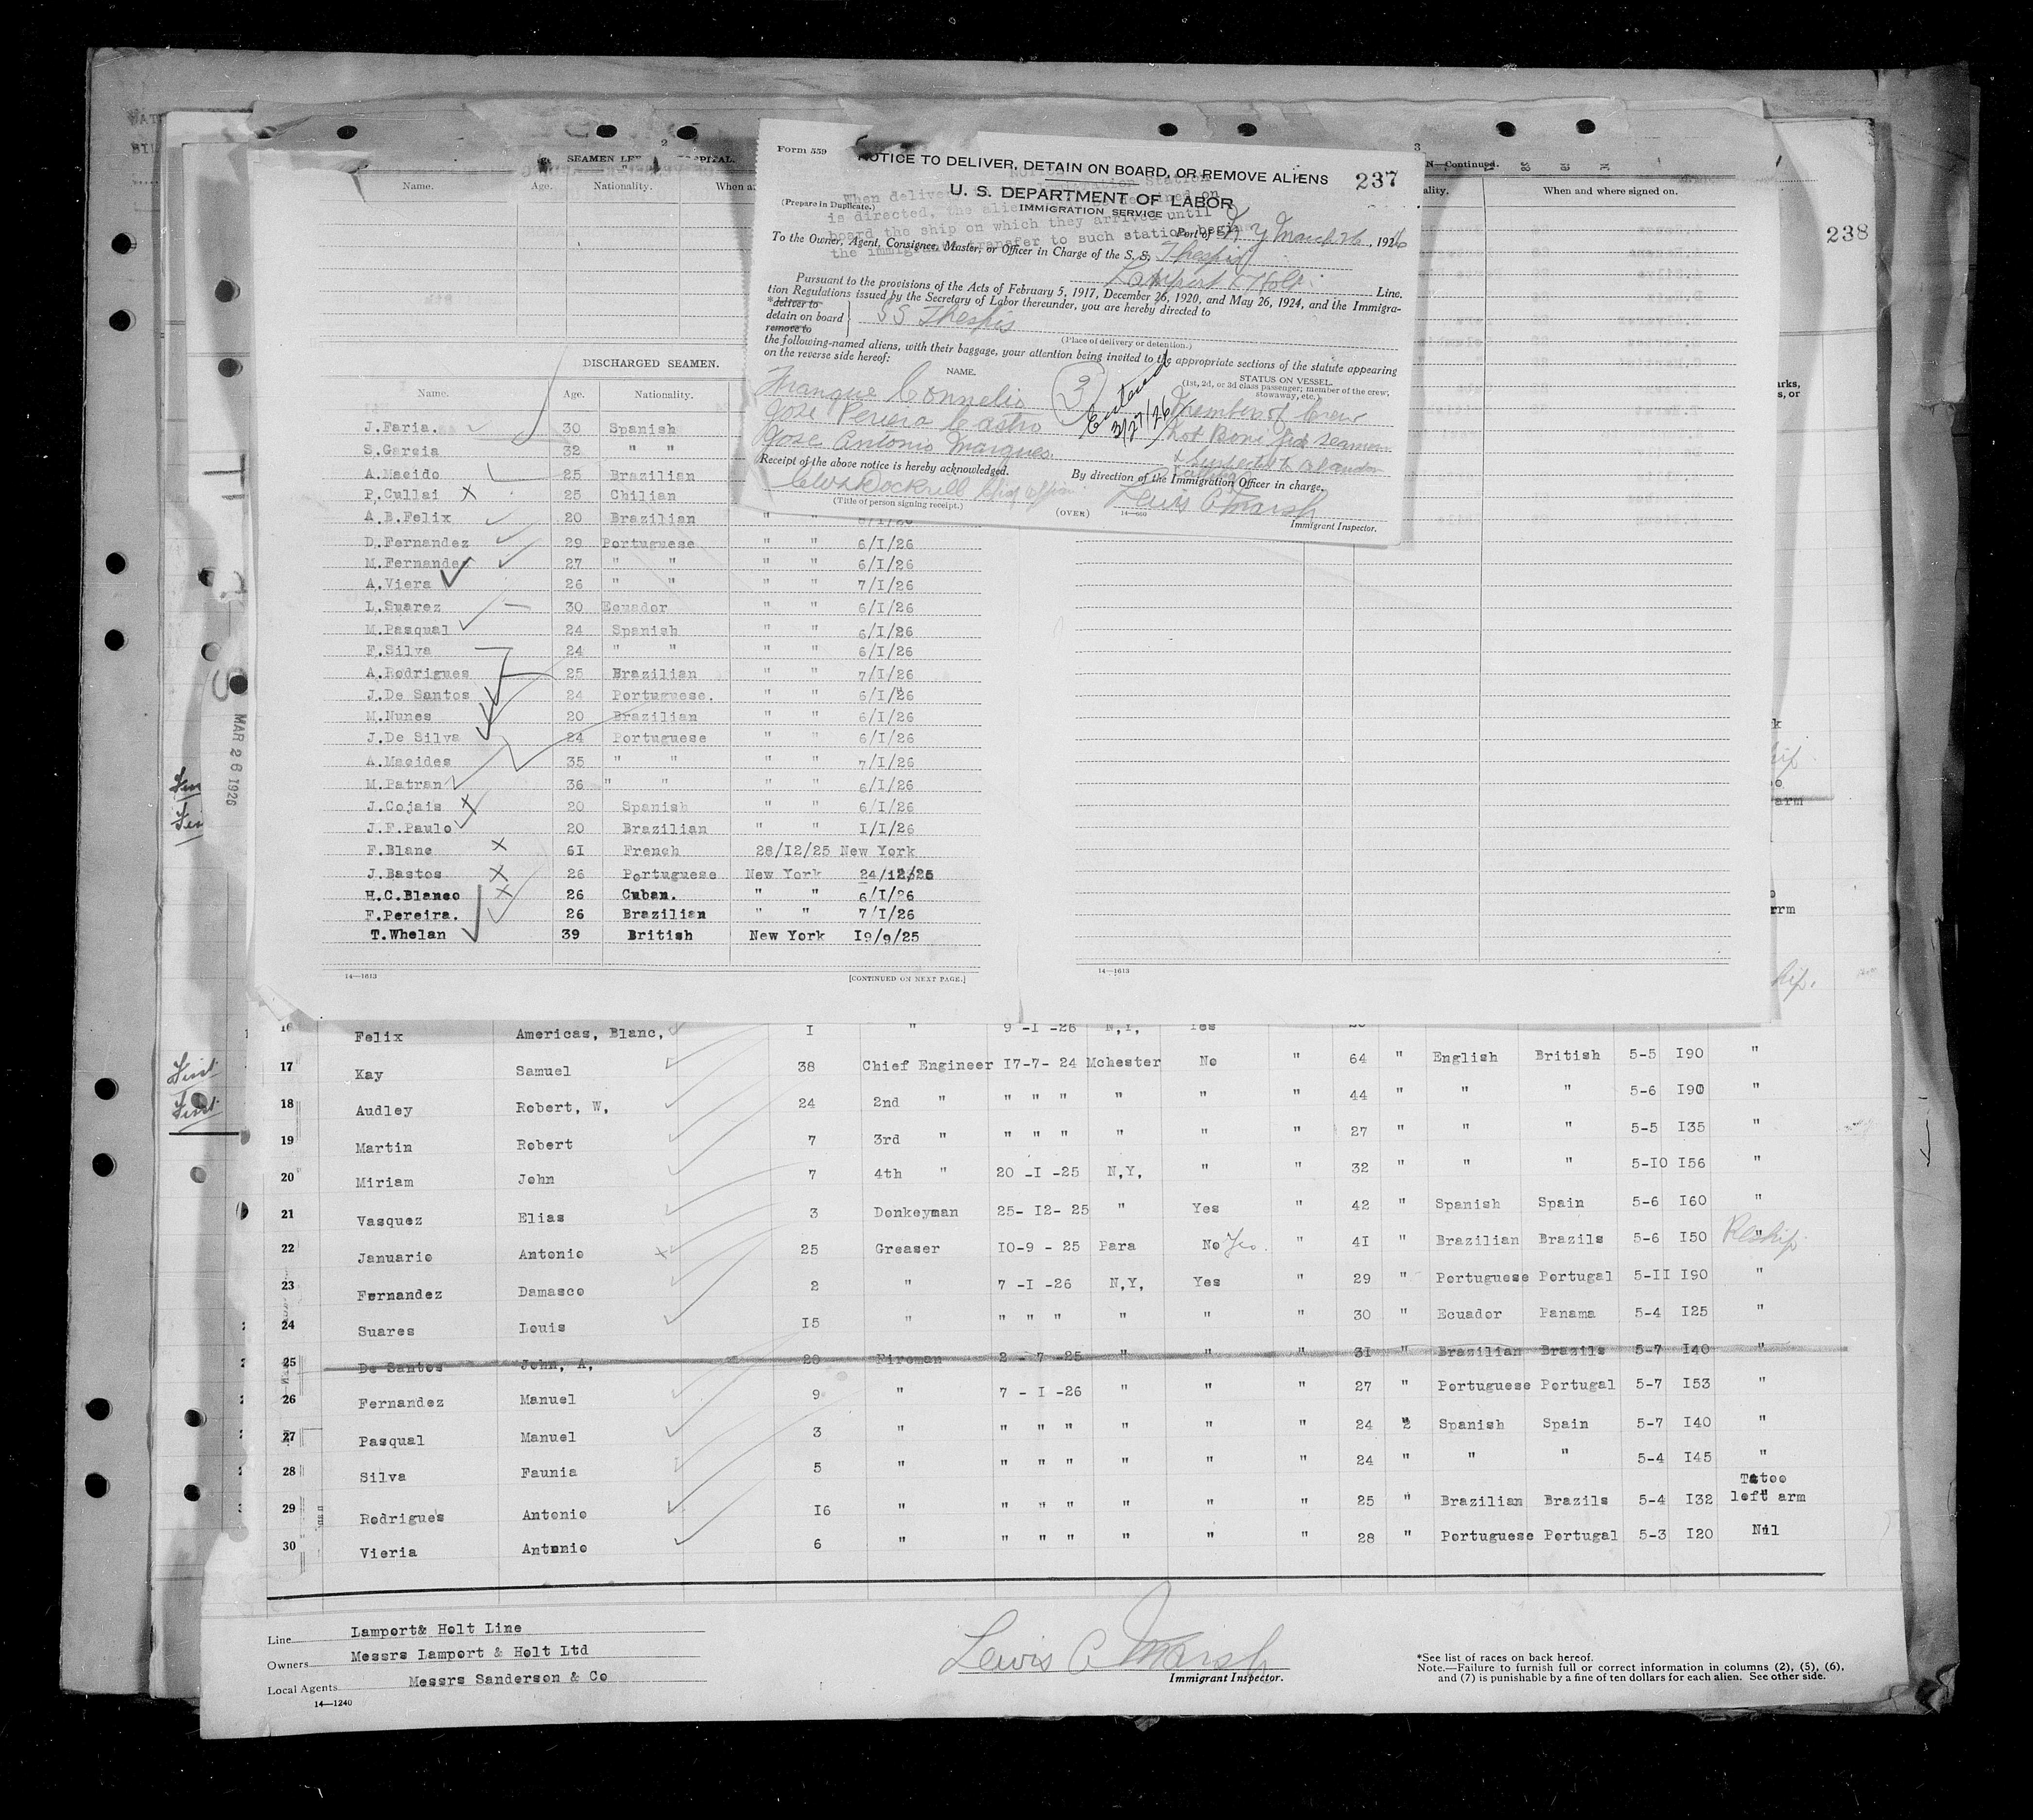 2
3
SEAMEN
N—Continued.
Name.
Age.
Nationality.
When and where signed on.
238
Form 559
NOTICE TO DELIVER, DETAIN ON BOARD, OR REMOVE ALIENS
237
U. S. DEPARTMENT OF LABOR
(Prepare in Duplicate.)
IMMIGRATION SERVICE
Port of N Y March 26, 1926
To the Owner, Agent, Consignee, Master, or Officer in Charge of the S. S. Thespis
Lamport & Holt Line.
Pursuant to the provisions of the Acts of February 5, 1917, December 26, 1920, and May 26, 1924, and the Immigra-
tion Regulations issued by the Secretary of Labor thereunder, you are hereby directed to
*deliver to
detain on board
remove to
SS Thespis
(Place of delivery or detention.)
the following-named aliens, with their baggage, your attention being invited to the appropriate sections of the statute appearing
on the reverse side hereof:
NAME.
STATUS ON VESSEL.
(1st, 2d, or 3d class passenger; member of the crew, stowaway, etc.)
Franque Cornnelis
3
Entered
3/27/26
Member of Crew
Jose Periera Castro
Not Bona fide seamen
Jose Antonio Marques.
Receipt of the above notice is hereby acknowledged.
By direction of the Immigration Officer in charge.
Dockrill Chief Officer
Lewis C Marsh
(Title of person signing receipt.)
(OVER)
14—660
Immigrant Inspector.
DISCHARGED SEAMEN.
Name. Age. Nationality.
J.Faria. 30 Spanish
S.Garcia 32 " "
A.Maeido 25 Brazilian
P.Cullai X 25 Chilian
A.B.Felix 20 Brazilian " "
D.Fernandez 29 Portuguese " " 6/I/26
M.Fernandez 27 " " " " 6/I/26
A.Viera 26 " " " " 7/I/26
L.Suarez 30 Ecuador " " 6/I/26
M.Pasqual 24 Spanish " " 6/I/26
F.Silva 24 " " " " 6/I/26
A.Rodrigues 25 Brazilian " " 7/I/26
J.De Santos 24 Portuguese. " " 6/I/26
M.Nunes 20 Brazilian " " 6/I/26
J.De Silva 24 Portuguese " " 6/I/26
A.Maeides 35 " " " " 7/I/26
M.Patran 36 " " " " 6/I/26
J.Cojais X 20 Spanish " " 6/I/26
J.F.Paulo 20 Brazilian " " I/I/26
F.Blanc X 6I French 28/I2/25 New York
J.Bastos X 26 Portuguese New York 24/12/25
H.C.Blanco X 26 Cuban. " " 6/I/26
F.Pereira. 26 Brazilian " " 7/I/26
T.Whelan 39 British New York I9/9/25
14—1613
[CONTINUED ON NEXT PAGE.]
14—1613
MAR 26 1926
16 Felix Americas, Blanc, I " 9 -I -26 N,Y, Yes
17 Kay Samuel 38 Chief Engineer I7-7- 24 Mchester No " 64 " English British 5-5 I90 "
18 Audley Robert, W, 24 2nd " " " " " " " 44 " " " 5-6 I90 "
19 Martin Robert 7 3rd " " " " " " " 27 " " " 5-5 I35 "
20 Miriam John 7 4th " 20 -I -25 N,Y, " " 32 " " " 5-I0 I56 "
21 Vasquez Elias 3 Donkeyman 25- I2- 25 " Yes " 42 " Spanish Spain 5-6 I60 "
22 Januario Antonio 25 Greaser I0-9 - 25 Para No Yes. " 4I " Brazilian Brazils 5-6 I50 " Reship
23 Fernandez Damasco 2 " 7 -I -26 N,Y, Yes " 29 " Portuguese Portugal 5-II I90 "
24 Suares Louis I5 " " " " " " " 30 " Ecuador Panama 5-4 I25 "
25 De Santos John, A, 29 Fireman 2 - 7 -25 " " " 3I " Brazilian Brazils 5-7 I40 "
26 Fernandez Manuel 9 " 7 - I -26 " " " 27 " Portuguese Portugal 5-7 I53 "
27 Pasqual Manuel 3 " " " " " " " 24 " Spanish Spain 5-7 I40 "
28 Silva Faunia 5 " " " " " " " 24 " " " 5-4 I45 "
29 Rodrigues Antonio I6 " " " " " " " 25 " Brazilian Brazils 5-4 I32 Tatoo left arm
30 Vieria Antonio 6 " " " " " " " 28 " Portuguese Portugal 5-3 I20 Nil
Line Lamport& Holt Line
Owners Messrs Lamport & Holt Ltd
Local Agents Messrs Sanderson & Co
14—1240
Lewis C Marsh
Immigrant Inspector.
*See list of races on back hereof.
Note.—Failure to furnish full or correct information in columns (2), (5), (6),
and (7) is punishable by a fine of ten dollars for each alien. See other side.